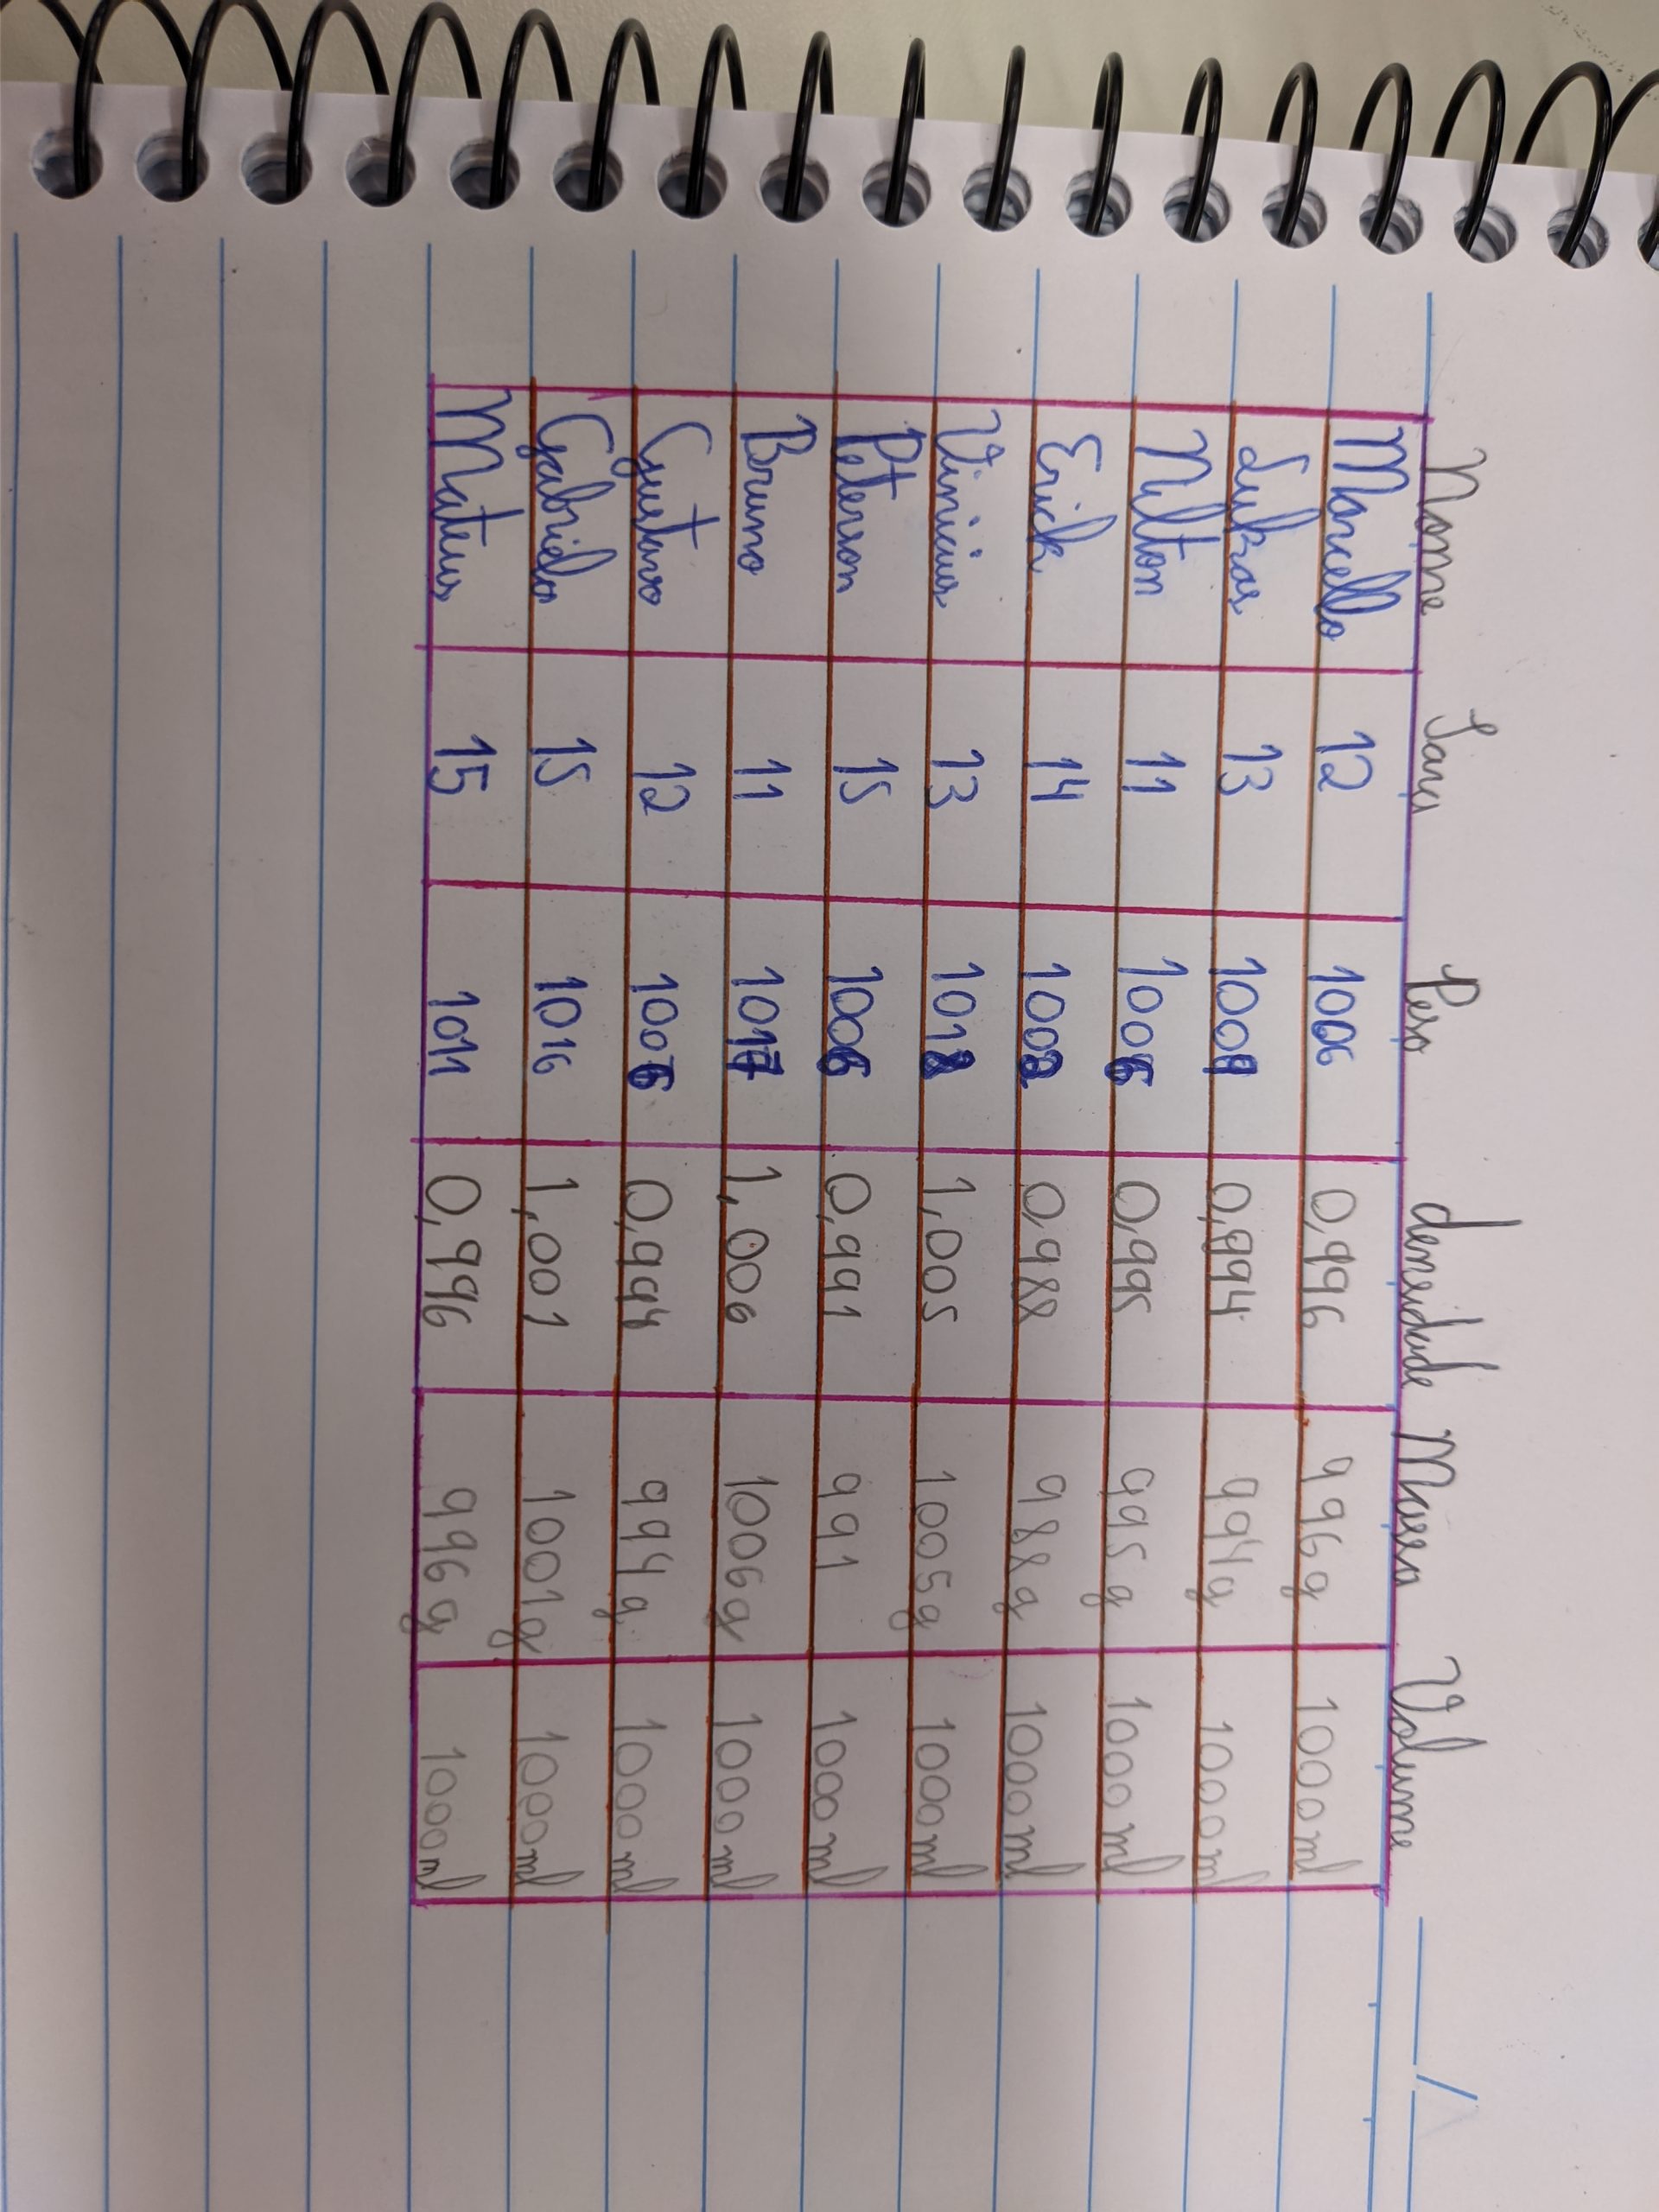 Nome Tara Peso densidade Massa Volume
Marcello 12 1006 0,996 996g 1000ml
Lukas 13 1007 0,994 994g 1000ml
Nilton 11 1006 0,995 995g 1000ml
Erick 14 1002 0,988 988g 1000ml
Vinicius 13 1018 1,005 1005g 1000ml
Peterson 15 1006 0,991 991 1000ml
Bruno 11 1017 1,006 1006g 1000ml
Gustavo 12 1006 0,994 994g 1000ml
Gabriela 15 1016 1,001 1001g 1000ml
Mateus 15 1011 0,996 996g 1000ml